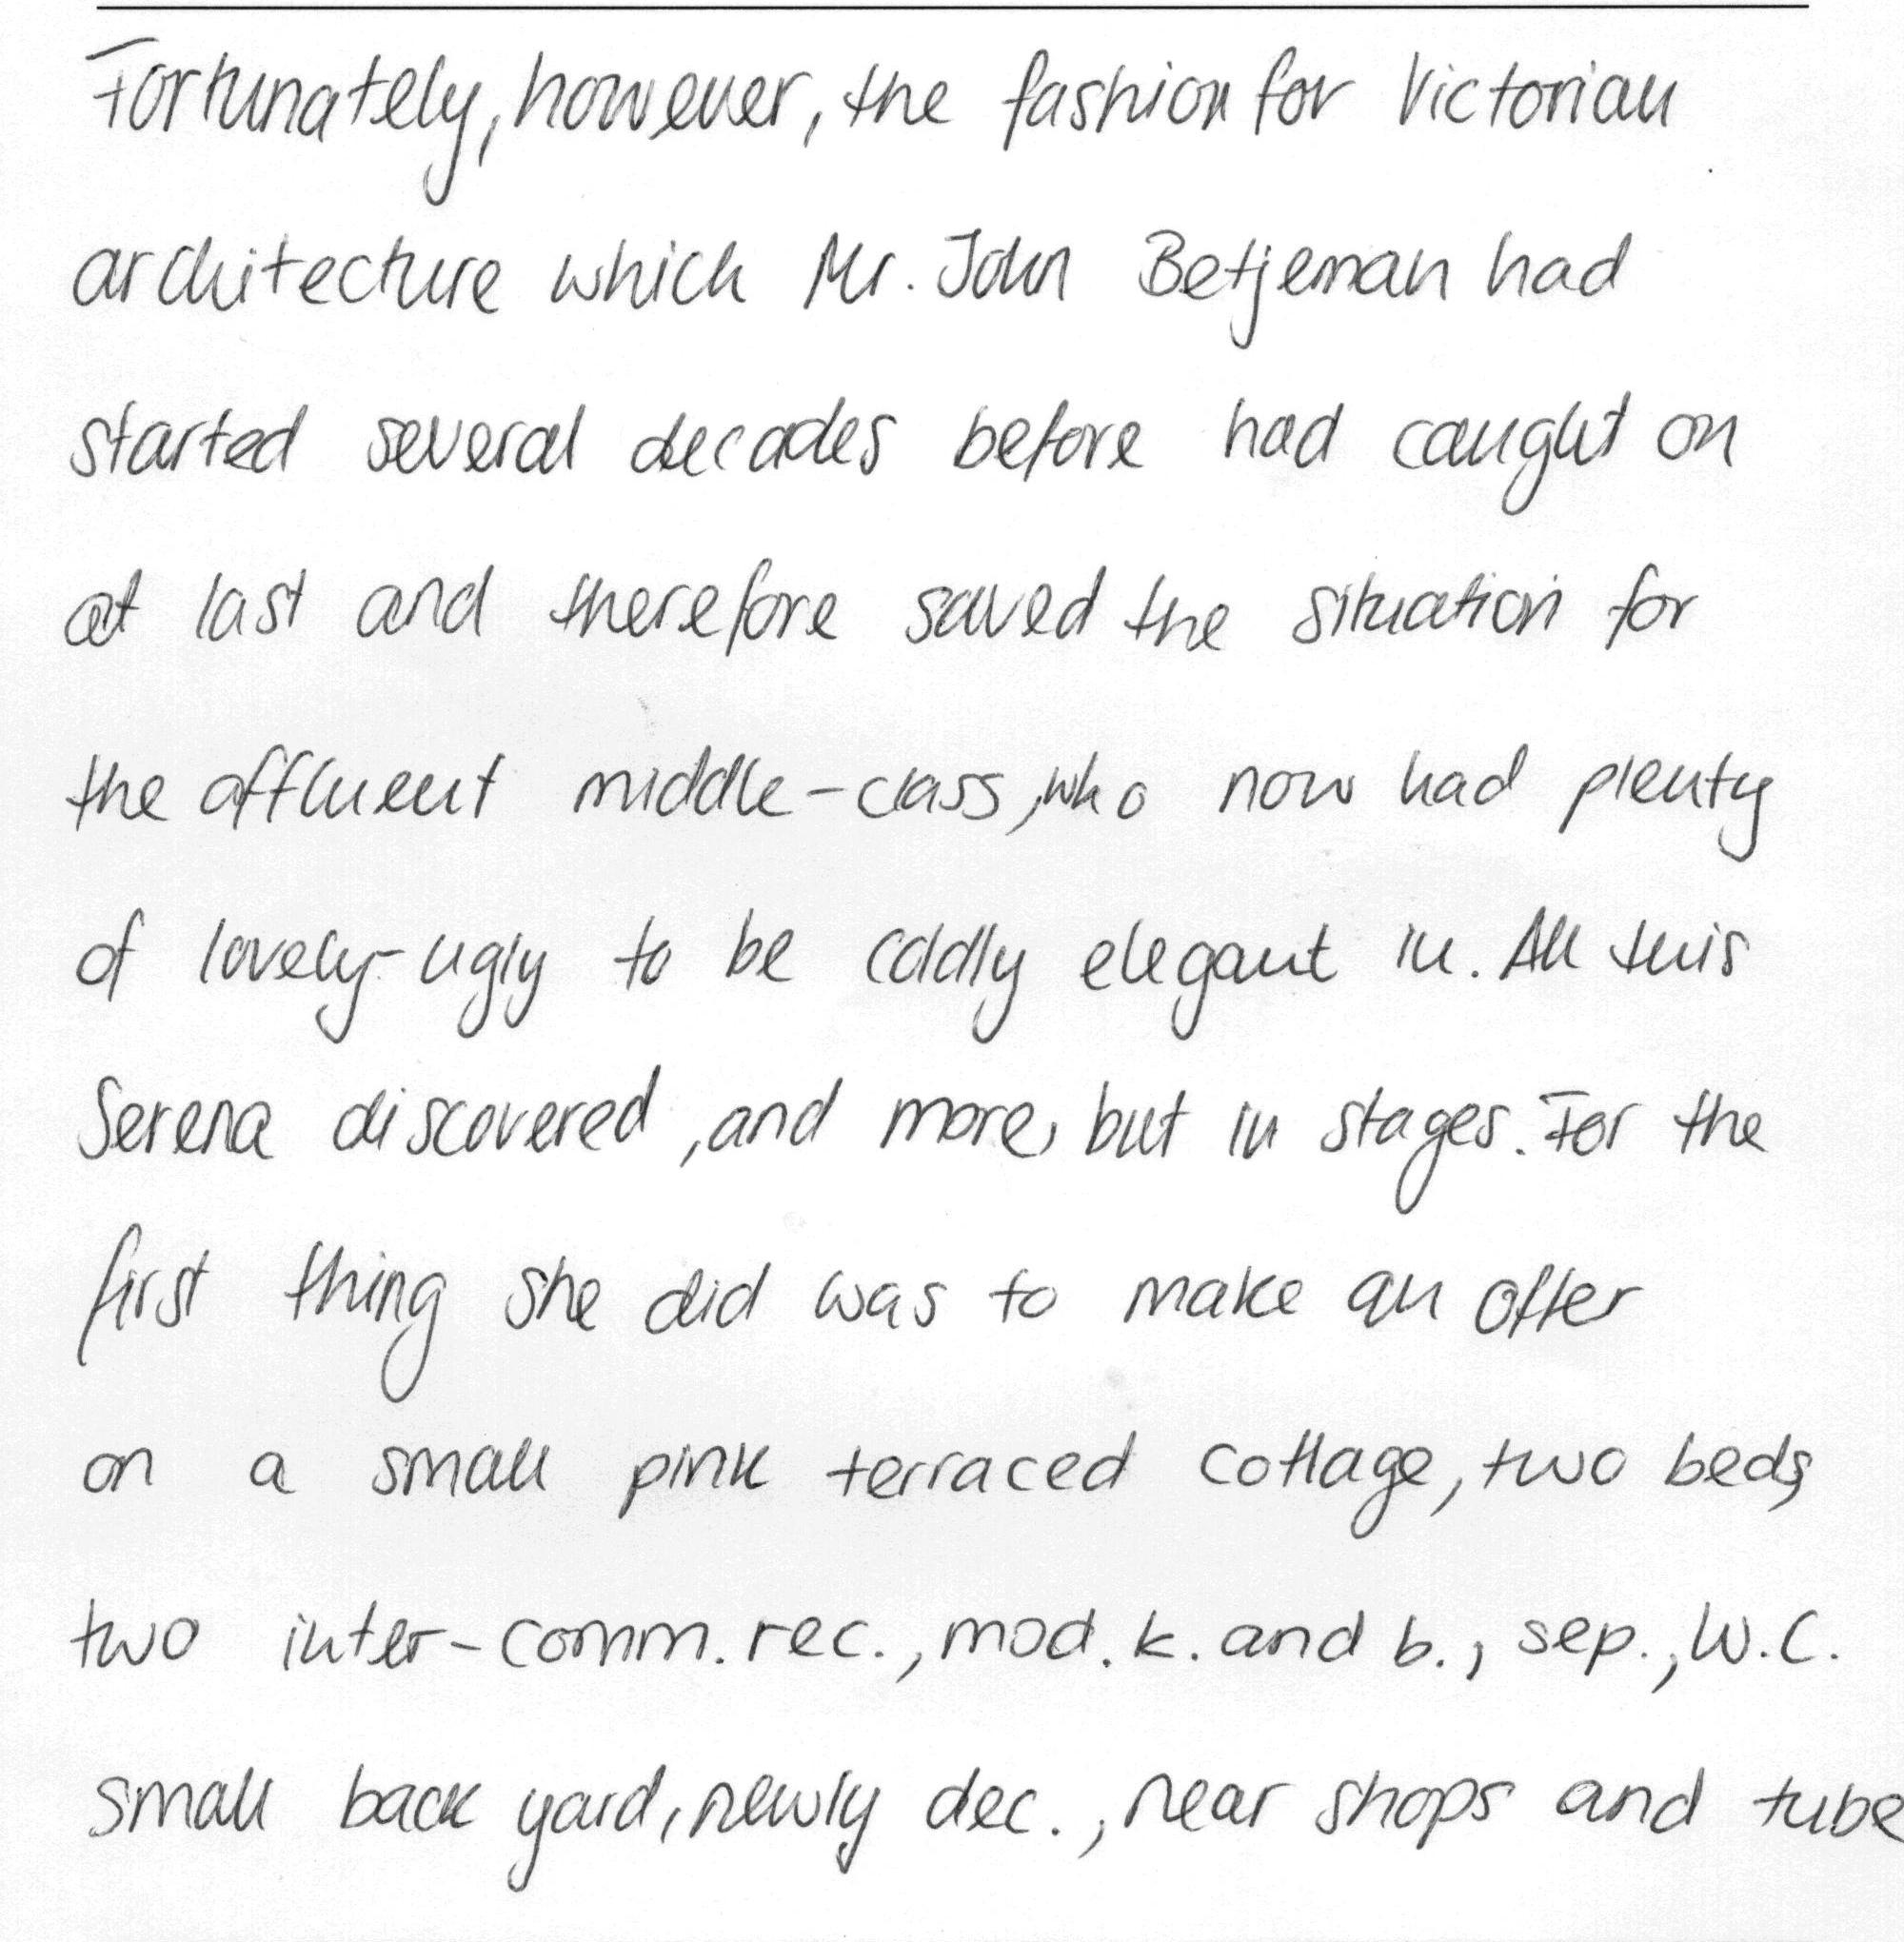 Fortunately, however, the fashion for Victorian
architecture which Mr. John Betjeman had
started several decades before had caught on
at last and therefore saved the situation for
the affluent middle-class, who now had plenty
of lovely-ugly to be coldly elegant in. All this
Serena discovered, and more, but in stages. For the
first thing she did was to make an offer
on a small pink terraced cottage, two beds,
two inter-comm. rec., mod. k. and b., sep., W.C.
small back yard, newly dec., near shops and tube